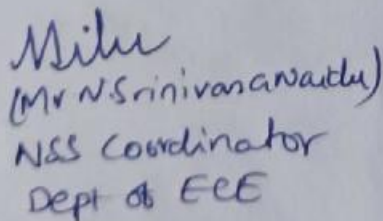 (Mr N.Srinivasa Naidu)
NSS Coordinator
Dept of ECE